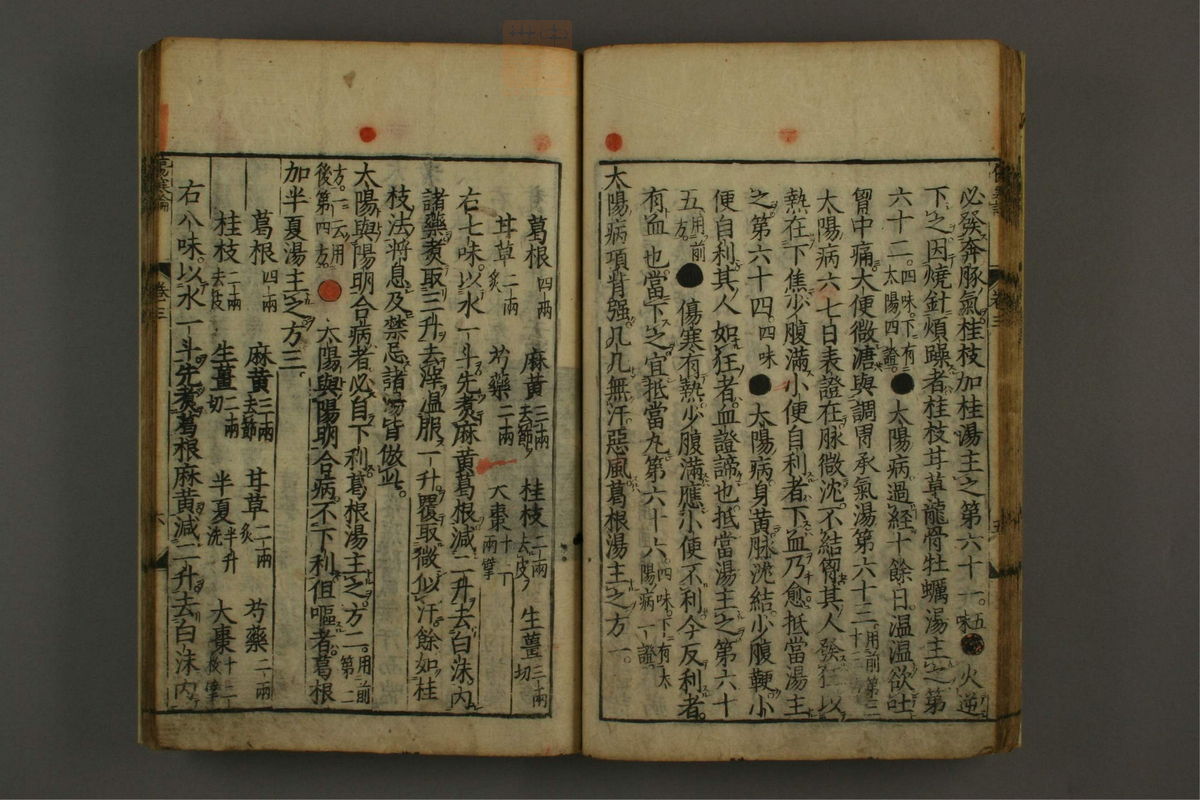 必發奔豚氣桂枝加桂湯主之第六十一五味●火逆
下之因燒針煩躁者桂枝甘草龍骨牡蠣湯主之第
六十二四味下有太陽四證●太陽病過經十餘日温温欲吐
胷中痛大便微溏與調胃承氣湯第六十三用前第三十
太陽病六七日表證在脉微沈不結胷其人發狂以
熱在下焦少腹滿小便自利者下血乃愈抵當湯主
之第六十四四味●太陽病身黄脉沈結少腹鞕小
便自利其人如狂者血證諦也抵當湯主之第六十
五用前方●傷寒有熱少腹滿應小便不利今反利者
有血也當下之宜抵當丸第六十六四味下有太陽病一證
太陽病項背强几几無汗惡風葛根湯主之方一
葛根四兩 麻黄三兩去節 桂枝二兩去皮 生薑三兩切
甘草二兩炙 芍藥二兩 大棗十
右七味以水一斗先煑麻黄葛根減二升去白沫内
諸藥煑取三升去滓温服一升覆取微似汗餘如桂
枝法將息及禁忌諸湯皆倣此
太陽與陽明合病者必自下利葛根湯主之方二用前第一
方一云用後第四方●太陽與陽明合病不下利但嘔者葛根
加半夏湯主之方三
葛根四兩 麻黄三兩去節 甘草二兩炙 芍藥二兩
桂枝二兩去皮 生薑二兩切 半夏半升洗 大棗十二
右八味以水一斗先煑葛根麻黄減二升去白沫内
傷寒論 卷三 六
卷三 五